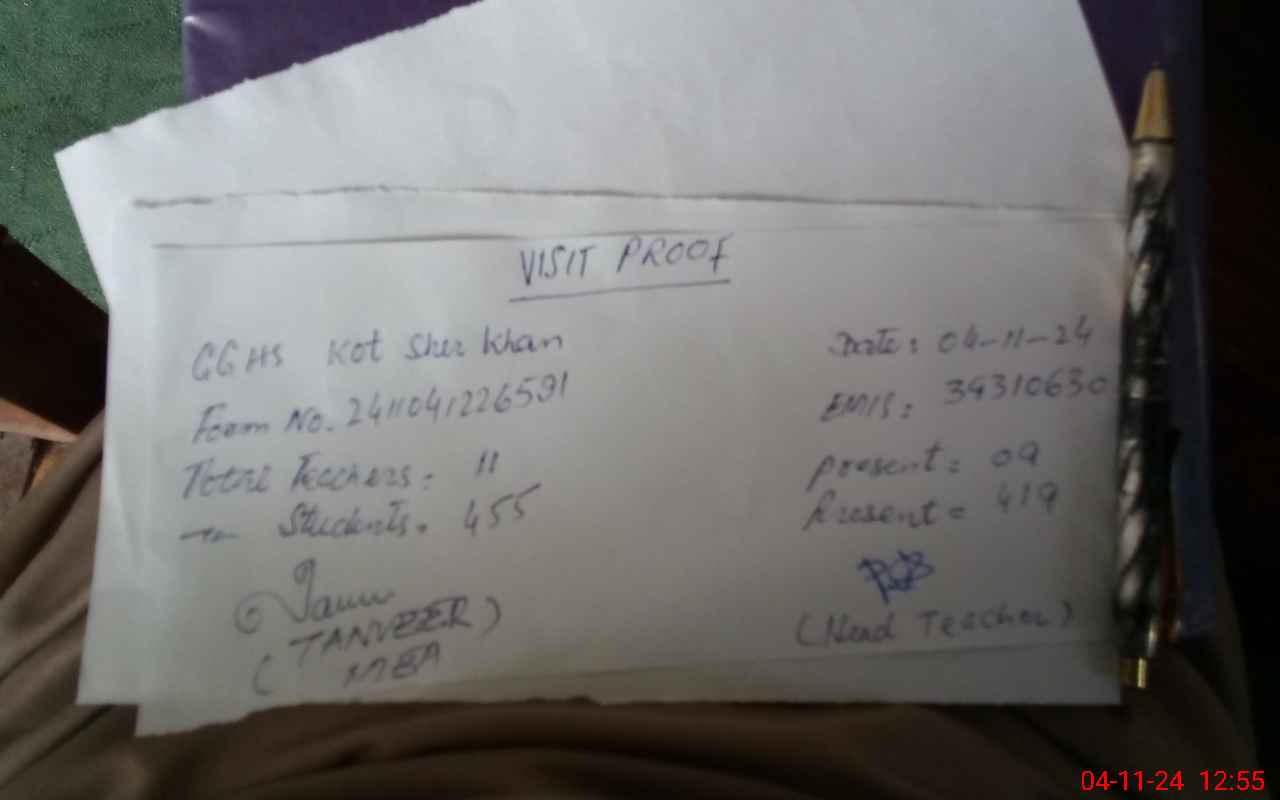 VISIT PROOF
GGHS Kot Sher Khan Date: 04-11-24
Form No. 2411041226591 EMIS: 39310630
Total Teachers: 11 present: 09
Students. 455 Present = 419
(TANVEER)
( MEA
(Head Teacher)
04-11-24 12:55